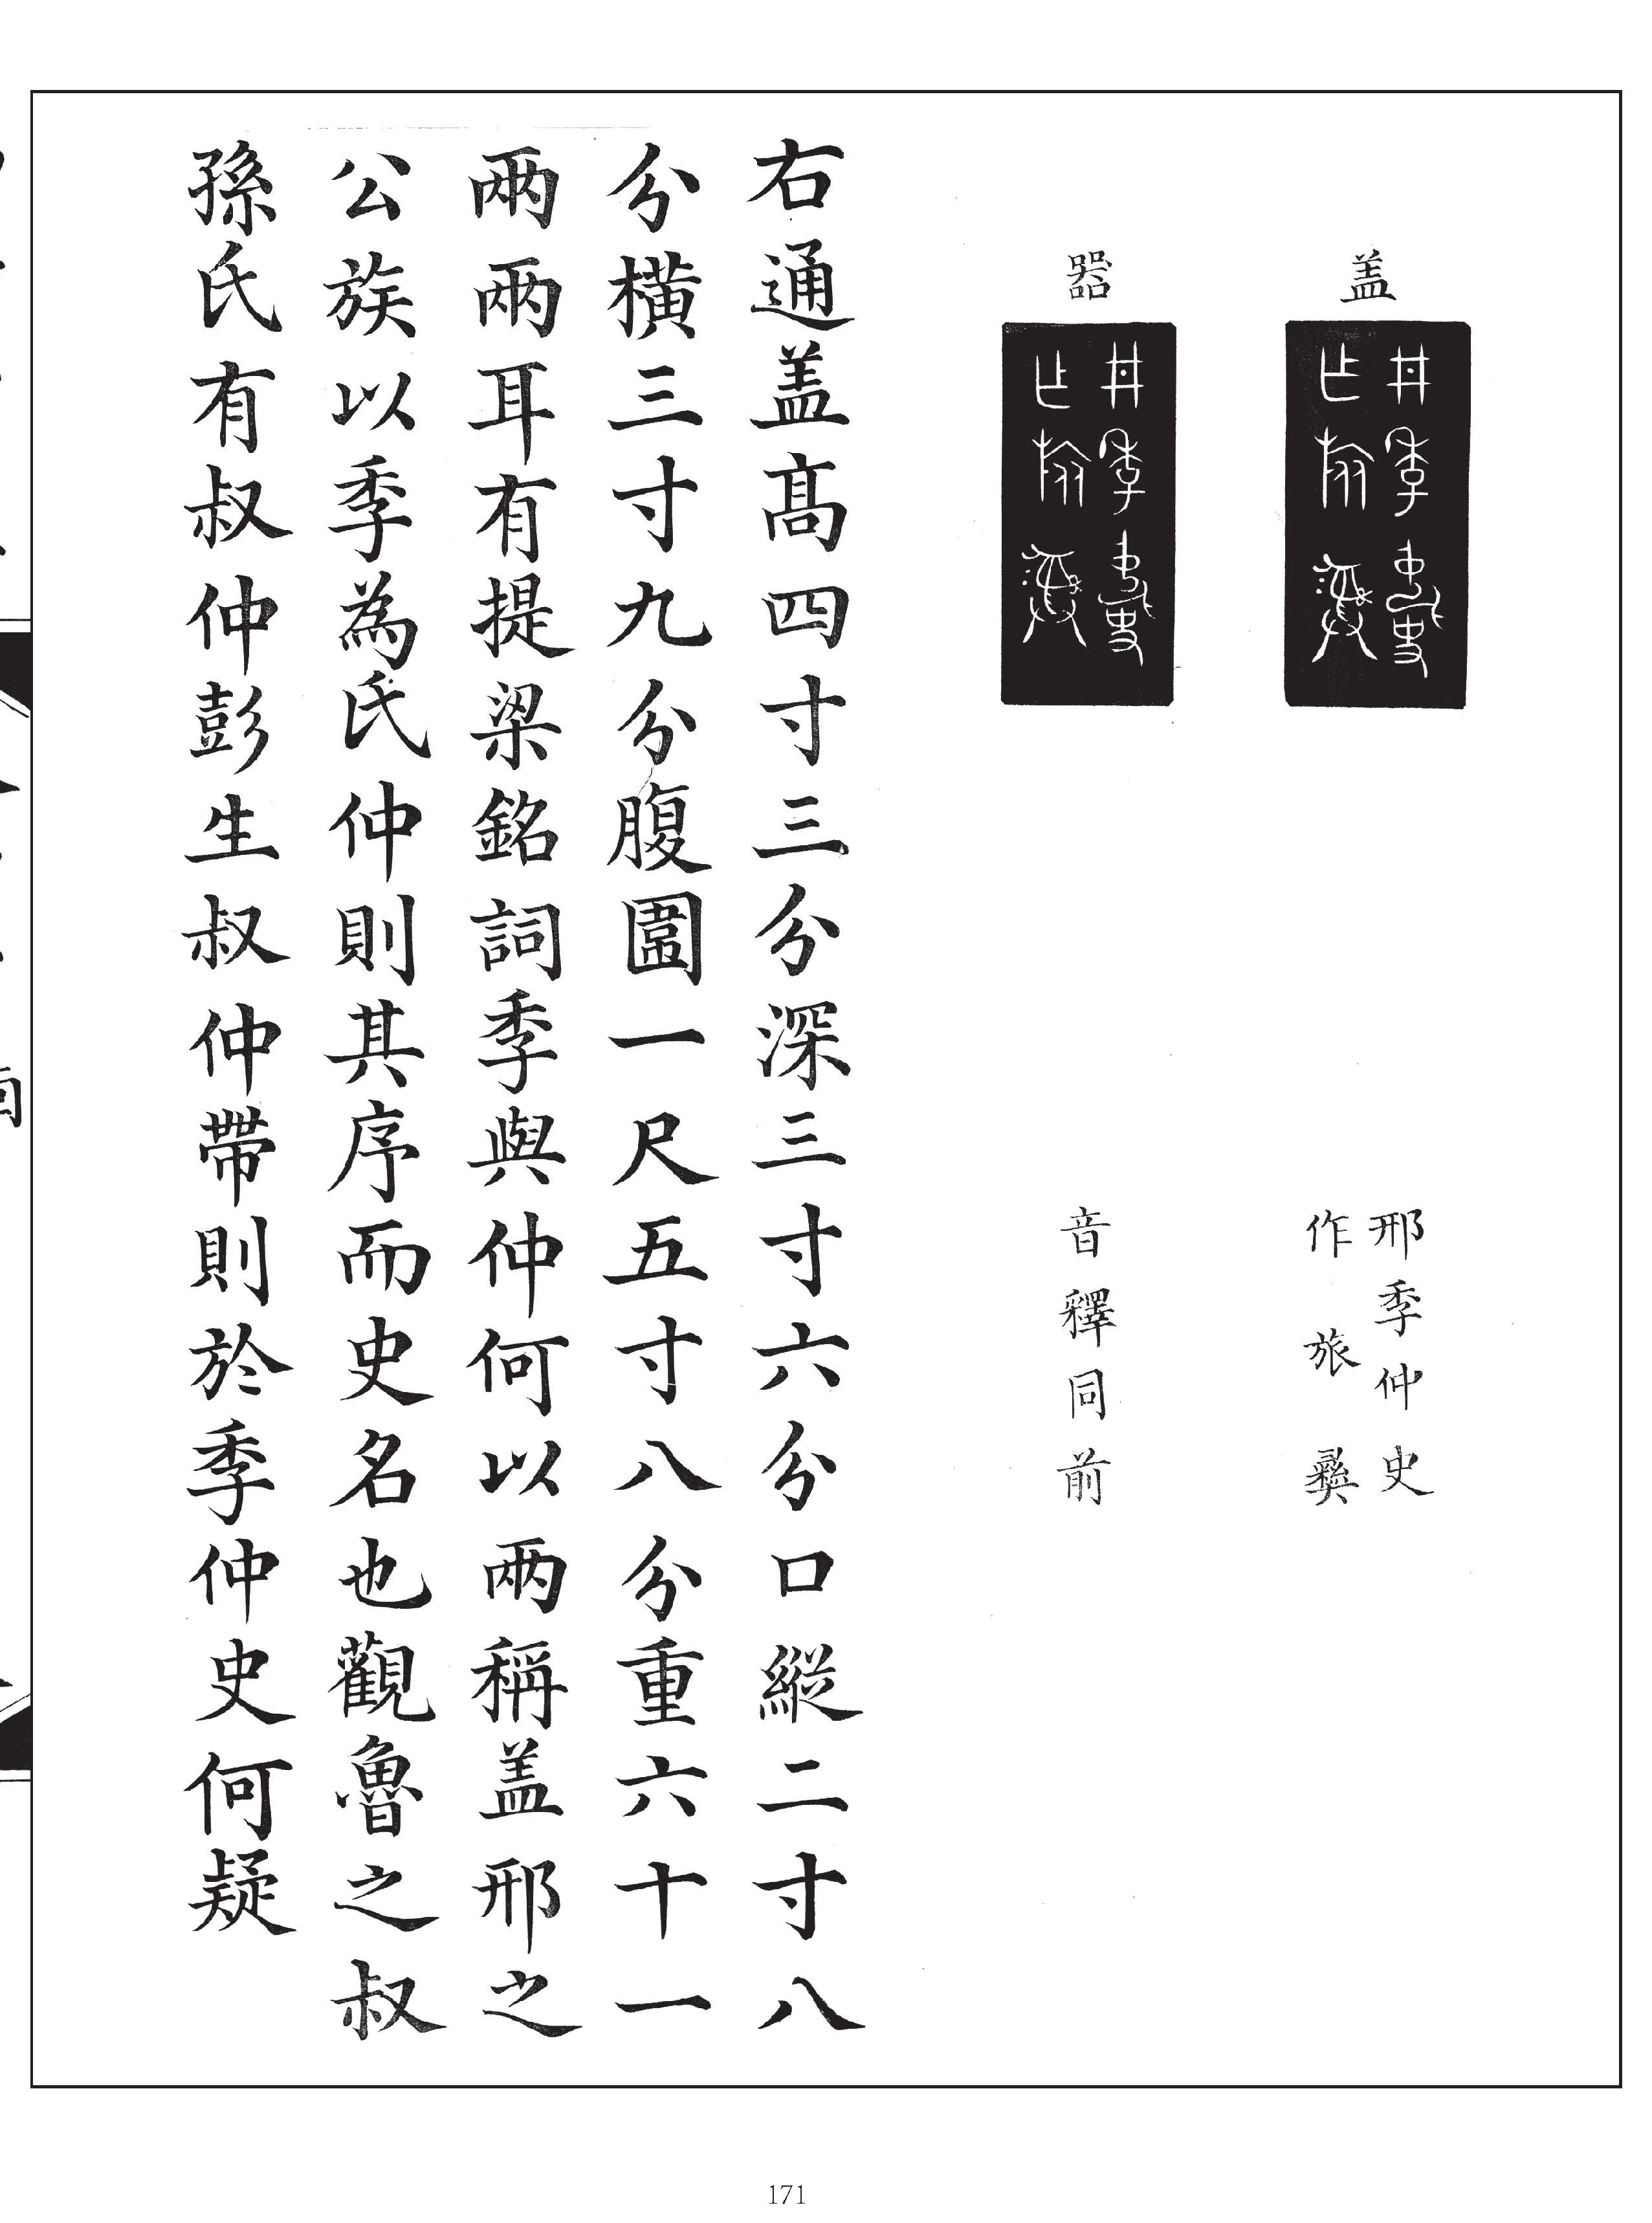 蓋
邢季仲史
作旅彝
器
音釋同前
右通蓋高四寸三分深三寸六分口縱二寸八
分橫三寸九分腹圍一尺五寸八分重六十一
兩兩耳有提梁銘詞季與仲何以兩稱蓋邢之
公族以季為氏仲則其序而史名也觀魯之叔
孫氏有叔仲彭生叔仲帶則於季仲史何疑
171